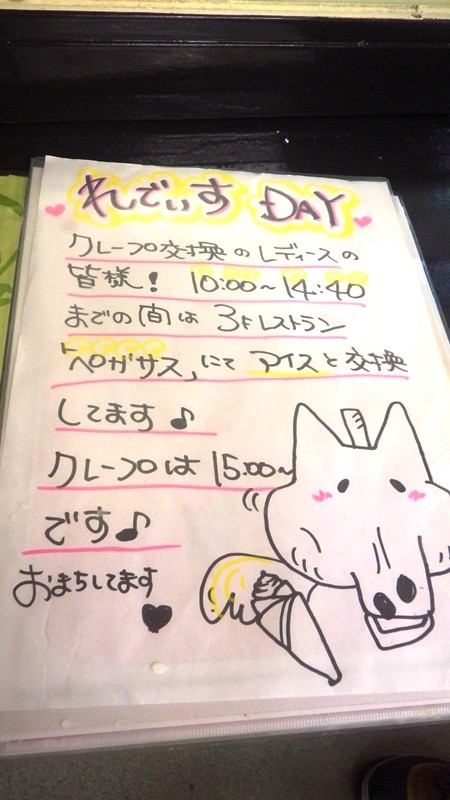 れでぃす DAY
クレープ交換のレディースの
皆様! 10:00~14:40
までの間は 3Fレストラン
「ペガサス」にて アイスと交換
してます♪
クレープは 15:00~
です♪
おまちしてます